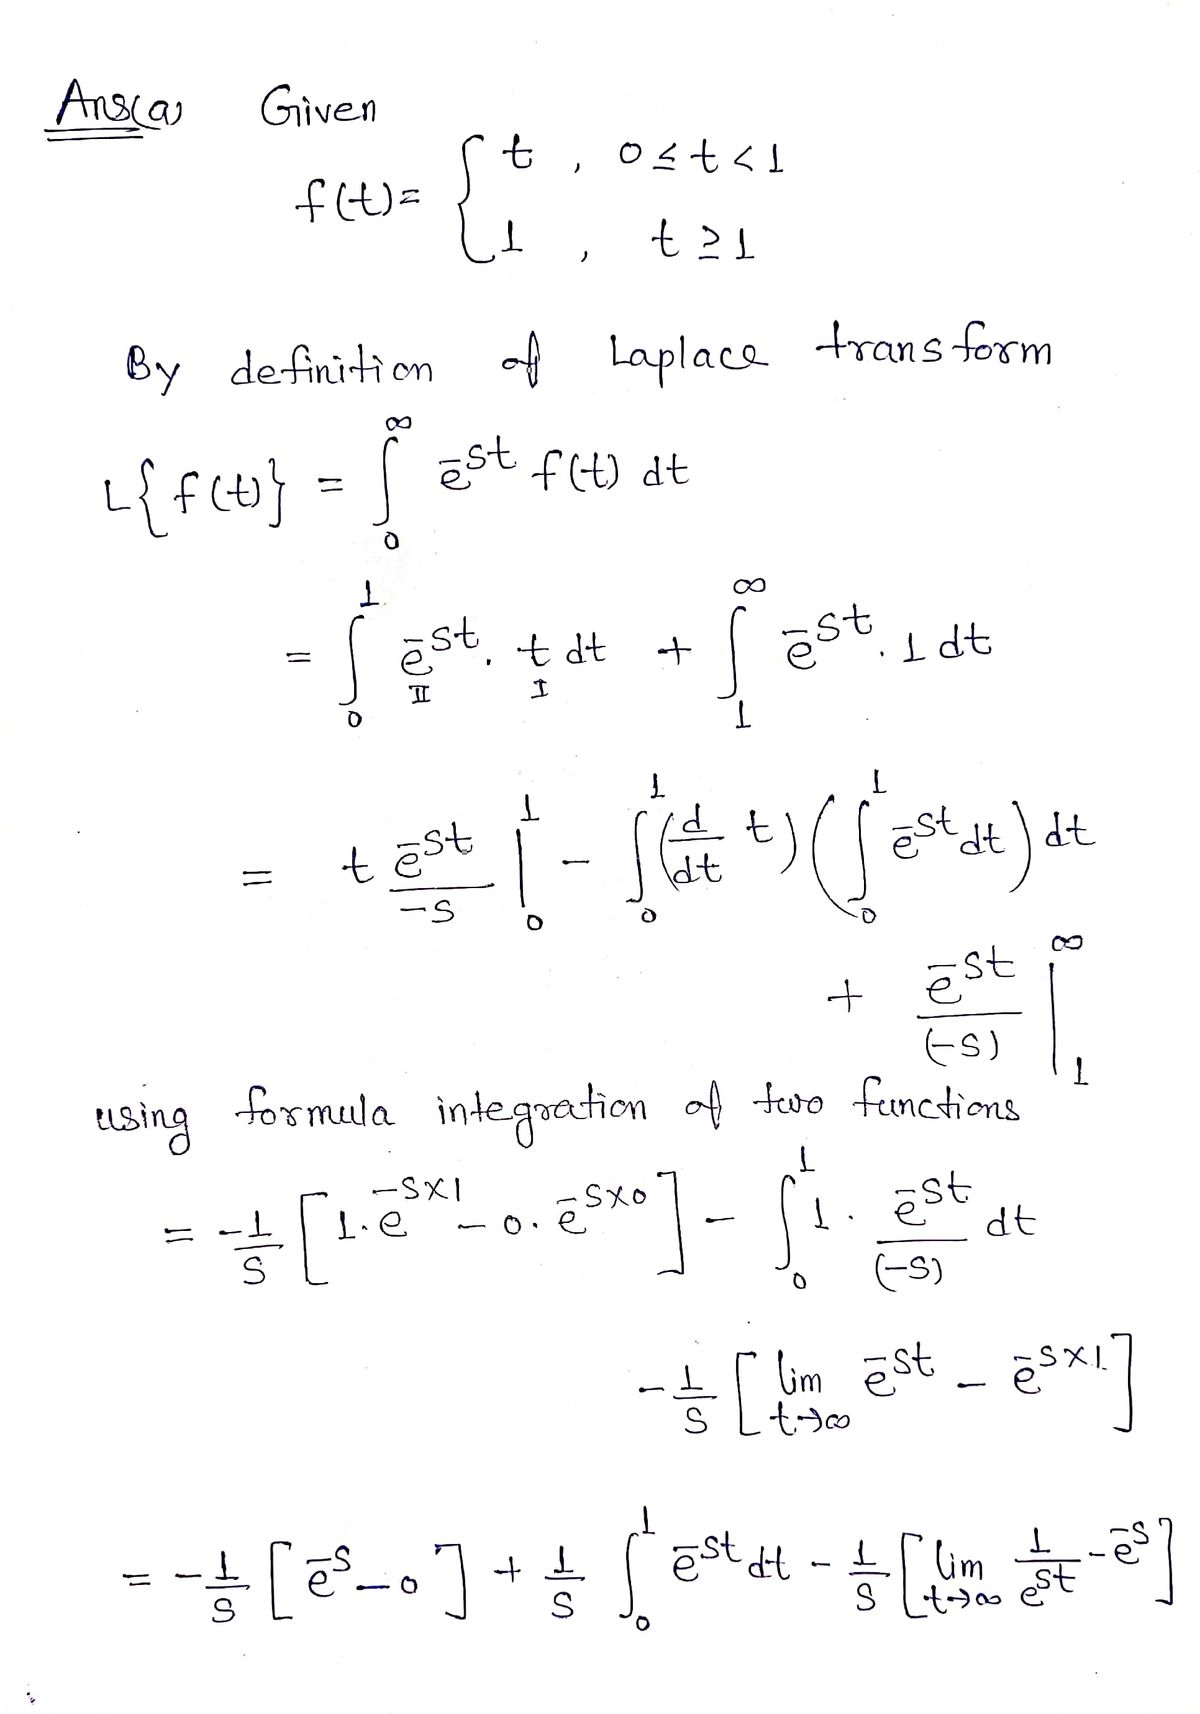 Ans(a) Given
f(t) = { t , 0 ≤ t < 1
1 , t ≥ 1
By definition of Laplace transform
L{f(t)} = ∫₀^∞ e^{-st} f(t) dt
= ∫₀^1 e^{-st} . t dt + ∫₁^∞ e^{-st} . 1 dt
II I
= t e^{-st}/-s |₀^1 - ∫₀^1 (d/dt t) (∫₀^1 e^{-st} dt) dt
+ e^{-st}/(-s) |₁^∞
using formula integration of two functions
= -1/s [1.e^{-s×1} - 0.e^{-s×0}] - ∫₀^1 1. e^{-st}/(-s) dt
-1/s [lim t→∞ e^{-st} - e^{-s×1}]
= -1/s [e^{-s} - 0] + 1/s ∫₀^1 e^{-st} dt - 1/s [lim t→∞ 1/e^{st} - e^{-s}]